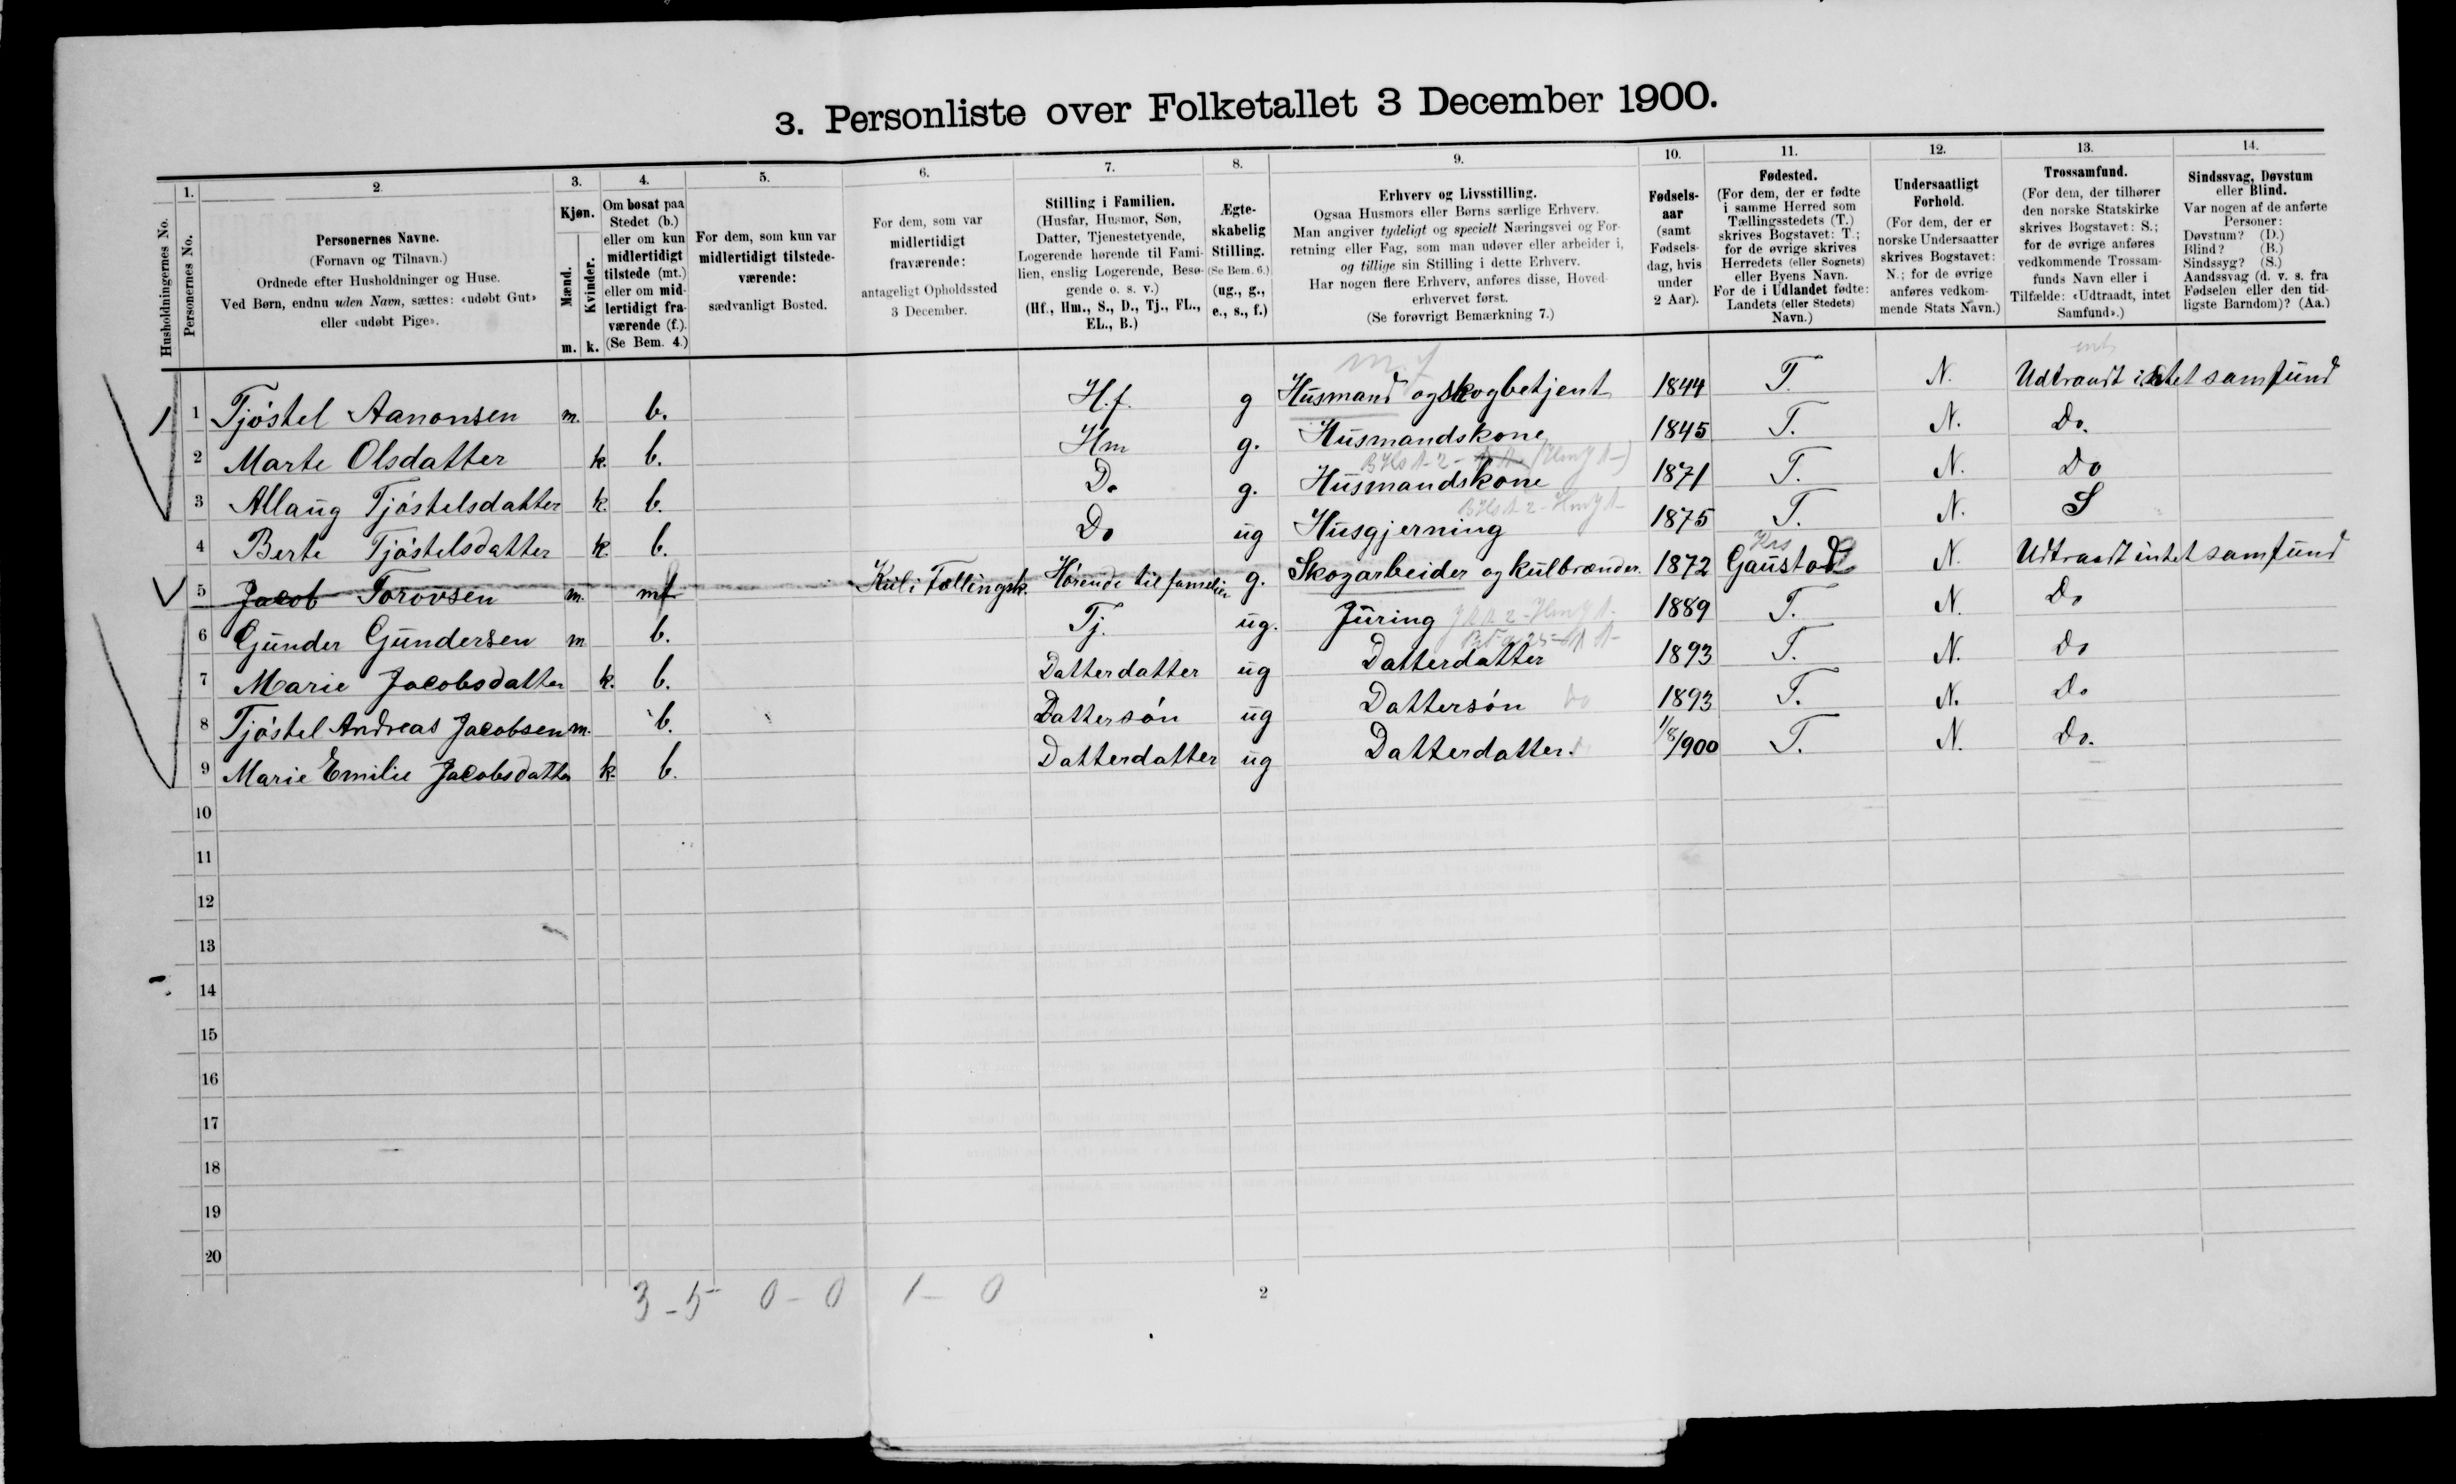 3. Personliste over Folketallet 3 December 1900.
Husholdningernes No.
1.
Personernes No.
2
Personernes Navne.
(Fornavn og Tilnavn.)
Ordnede efter Husholdninger og Huse.
Ved Børn, endnu uden Navn, sættes: «udøbt Gut»
eller «udøbt Pige».
3.
Kjøn.
Mænd.
Kvinder.
m. k.
4.
Om bosat paa
Stedet (b.)
eller om kun
midlertidigt
tilstede (mt.)
eller om mid-
lertidigt fra-
værende (f.).
(Se Bem. 4.)
5.
For dem, som kun var
midlertidigt tilstede-
værende:
sædvanligt Bosted.
6.
For dem, som var
midlertidigt
fraværende:
antageligt Opholdssted
3 December.
7.
Stilling i Familien.
(Husfar, Husmor, Søn,
Datter, Tjenestetyende,
Logerende hørende til Fami-
lien, enslig Logerende, Besø-
gende o. s. v.)
(Hf., Hm., S., D., Tj., FL.,
EL., B.)
8.
Ægte-
skabelig
Stilling.
(Se Bem. 6.)
(ug., g.,
e., s., f.)
9.
Erhverv og Livsstilling.
Ogsaa Husmors eller Børns særlige Erhverv.
Man angiver tydeligt og specielt Næringsvei og For-
retning eller Fag, som man udøver eller arbeider i,
og tillige sin Stilling i dette Erhverv.
Har nogen flere Erhverv, anføres disse, Hoved-
erhvervet først.
(Se forøvrigt Bemærkning 7.)
10.
Fødsels-
aar
(samt
Fødsels-
dag, hvis
under
2 Aar).
11.
Fødested.
(For dem, der er fødte
i samme Herred som
Tællingsstedets (T.)
skrives Bogstavet: T.;
for de øvrige skrives
Herredets (eller Sognets)
eller Byens Navn.
For de i Udlandet fødte:
Landets (eller Stedets)
Navn.)
12.
Undersaatligt
Forhold.
(For dem, der er
norske Undersaatter
skrives Bogstavet:
N.; for de øvrige
anføres vedkom-
mende Stats Navn.)
13.
Trossamfund.
(For dem, der tilhører
den norske Statskirke
skrives Bogstavet: S.;
for de øvrige anføres
vedkommende Trossam-
funds Navn eller i
Tilfælde: «Udtraadt, intet
Samfund».)
14.
Sindssvag, Døvstum
eller Blind.
Var nogen af de anførte
Personer:
Døvstum? (D.)
Blind? (B.)
Sindssyg? (S.)
Aandssvag (d. v. s. fra
Fødselen eller den tid-
ligste Barndom)? (Aa.)
1 1 Tjøstel Aanonsen m. b. H.f. g Husmand og skogbetjent 1844 T. N. Udtraadt intet samfund
2 Marte Olsdatter k. b. Hm g. Husmandskone 1845 T. N. Do.
3 Allaug Tjøstelsdatter k. b. Do g. Husmandskone 1871 T. N. Do
4 Berte Tjøstelsdatter k. b. Do ug Husgjerning 1875 T. N. S
5 Jacob Torovsen m. mt Kul i Follingsk. Hørende til familien g. Skogarbeider og kulbrænder. 1872 Gaustad N. Udtraadt intet samfund
6 Gunder Gundersen m b. Tj. ug. Juring 1889 T. N. Do
7 Marie Jacobsdatter k. b. Datterdatter ug Datterdatter 1893 T. N. Do
8 Tjøstel Andreas Jacobsen m. b. Dattersøn ug Dattersøn Do 1893 T. N. Do
9 Marie Emilie Jacobsdatter k. b. Datterdatter ug Datterdatter. 1/8/900 T. N. Do.
10
11
12
13
14
15
16
17
18
19
20
3-5 0-0 1-0
2